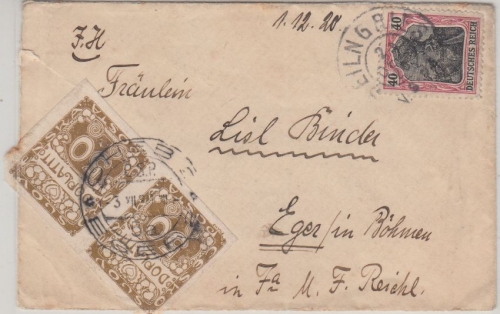 1.12.20.
F.H
40
40
DEUTSCHES REICH
Fräulein
Lisl Binder
Eger/in Böhmen
in Fa M. F. Reichl.
DOPLATIT
DOPLATIT